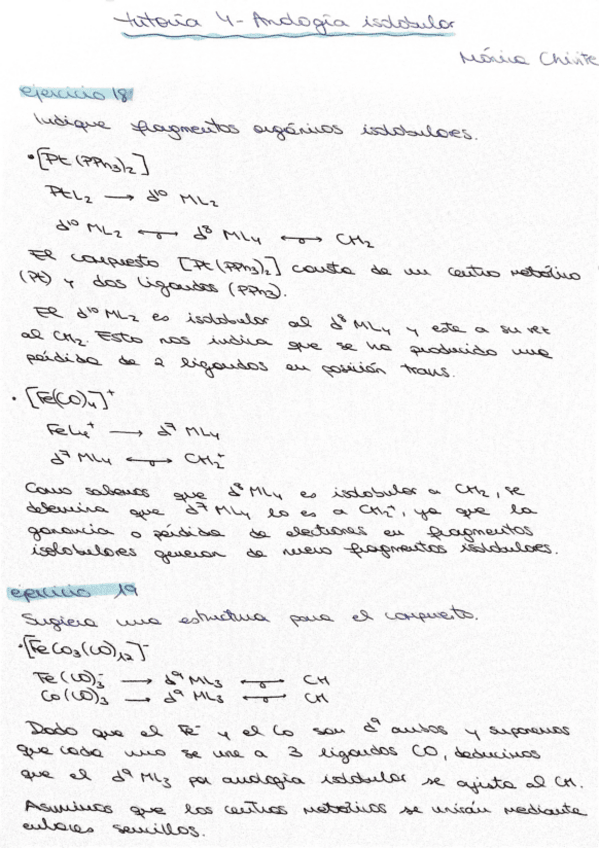 tutoría 4 - Analogía isolobular
Mónica Chirite
ejercicio 18
Indique fragmentos orgánicos isolobulares.
• [Pt(PPh₃)₂]
PtL₂ → d¹⁰ ML₂
d¹⁰ ML₂ ⟷ d⁸ ML₄ ⟷ CH₂
El compuesto [Pt(PPh₃)₂] consta de un centro metálico
(Pt) y dos ligandos (PPh₃).
El d¹⁰ ML₂ es isolobular al d⁸ ML₄ y este a su vez
al CH₂. Esto nos indica que se ha producido una
pérdida de 2 ligandos en posición trans.
• [Fe(CO)₄]⁺
FeL₄⁺ → d⁷ ML₄
d⁷ ML₄ ⟷ CH₂⁺
Como sabemos que d⁸ ML₄ es isolobular a CH₂, se
determina que d⁷ ML₄ lo es a CH₂⁺, ya que la
ganancia o pérdida de electrones en fragmentos
isolobulares generan de nuevo fragmentos isolobulares.
ejercicio 19
Sugiera una estructura para el compuesto.
• [FeCo₃(CO)₁₂]⁻
Fe(CO)₃⁻ → d⁹ ML₃ ⟷ CH
Co(CO)₃ → d⁹ ML₃ ⟷ CH
Dado que el Fe⁻ y el Co son d⁹ ambos y suponemos
que cada uno se une a 3 ligandos CO, deducimos
que el d⁹ ML₃ por analogía isolobular se ajusta al CH.
Asumimos que los centros metálicos se unirán mediante
enlaces sencillos.